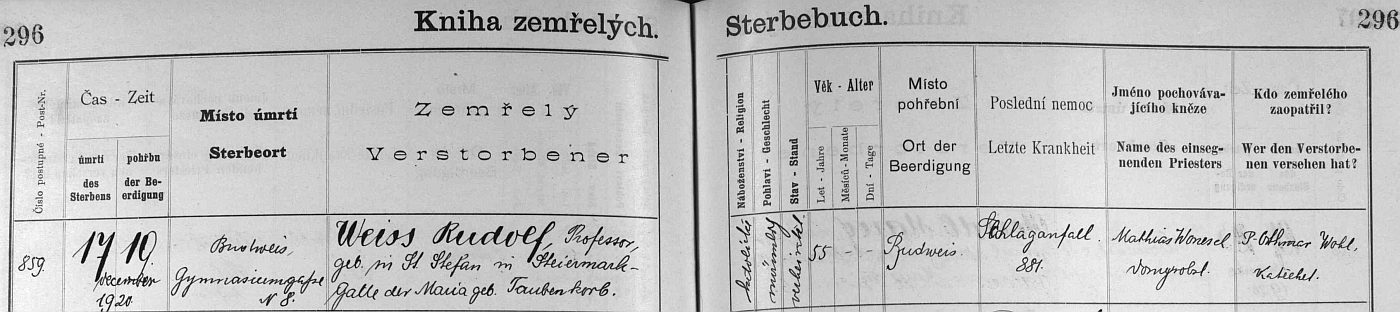 296
Kniha zemřelých.
Sterbebuch.
296
Číslo postupné - Post-Nr.
Čas - Zeit
úmrtí
des
Sterbens
pohřbu
der Be-
erdigung
Místo úmrtí
Sterbeort
Zemřelý
Verstorbener
Náboženství - Religion
Pohlaví - Geschlecht
Stav - Stand
Věk - Alter
Let - Jahre
Měsíců - Monate
Dní - Tage
Místo
pohřební
Ort der
Beerdigung
Poslední nemoc
Letzte Krankheit
Jméno pochováva-
jícího kněze
Name des einseg-
nenden Priesters
Kdo zemřelého
zaopatřil?
Wer den Verstorbe-
nen versehen hat?
859.
17 19
December
1920.
Budweis,
Gymnasiumgasse
N 8.
Weiss Rudolf, Professor,
geb. in St. Stefan in Steiermark-
Gatte der Maria geb. Taubenkorb.
55 - -
Budweis.
Schlaganfall.
881.
Mathias
P. Othmar Wohl,
Katechet.